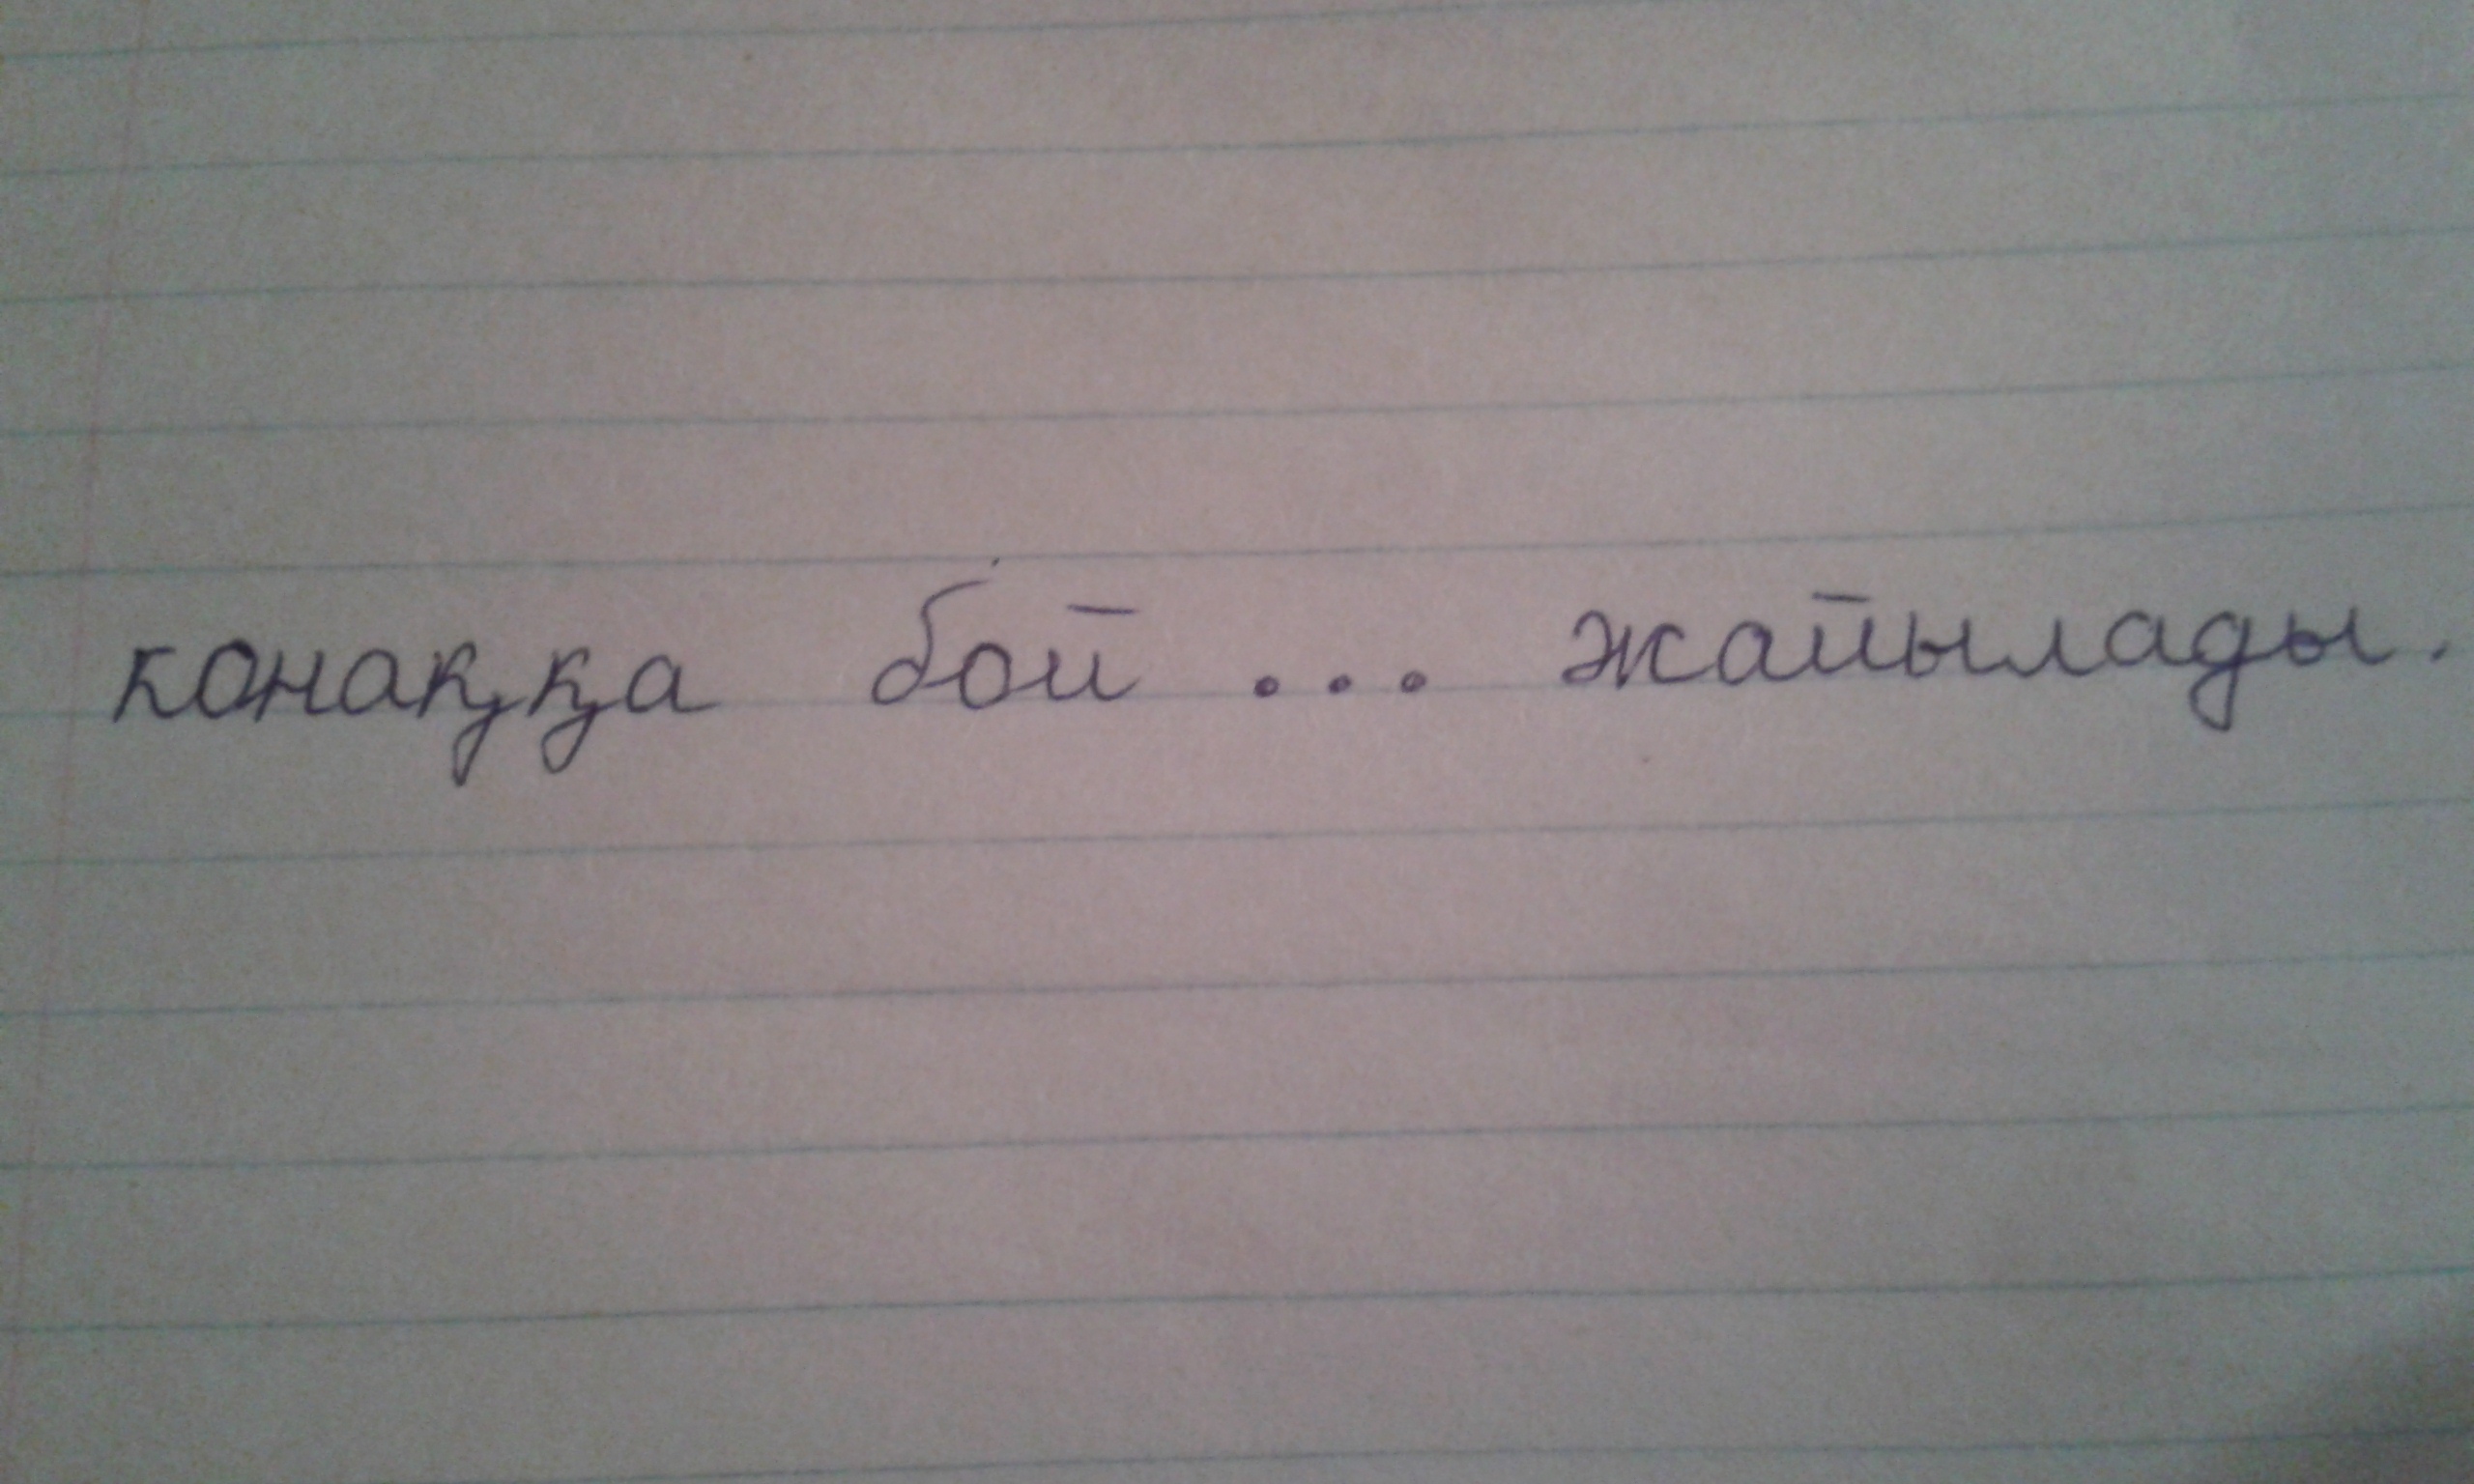 конаққа бой ... жайылады.